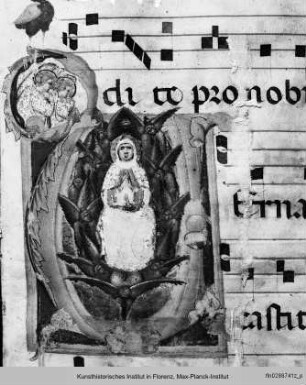 di to pro nobi
terna
castit
Kunsthistorisches Institut in Florenz, Max-Planck-Institut